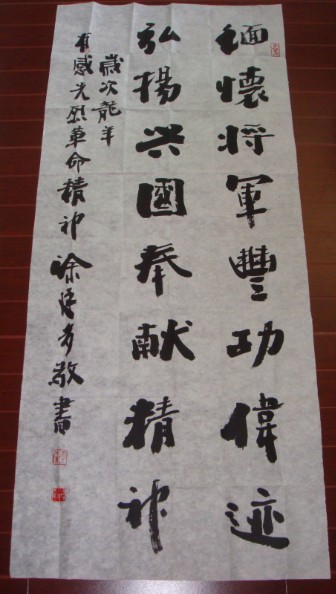 緬懷将軍豐功偉迹
弘揚兴國奉献精神
歲次龍年
有感先烈革命精神 徐 敬書